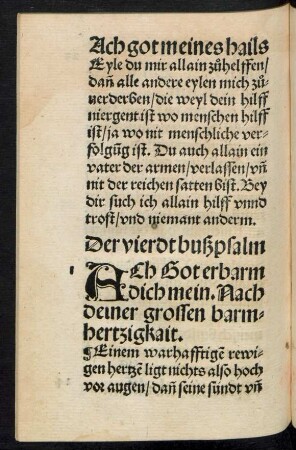 Ach got meines hails
Eyle du mir allain zůhelffen/
dañ alle andere eylen mich zů⸗
uerderben/die weyl dein hilff
niergent ist wo menschen hilff
ist/ja wo nit menschliche ver⸗
folgũg ist. Du auch allain ein
vater der armen/verlassen/vñ
nit der reichen satten bist. Bey
dir such ich allain hilff vnnd
trost/vnd niemant anderm.
Der vierdt bußpsalm
1 ACh Got erbarm
dich mein. Nach
deiner grossen barm⸗
hertzigkait.
¶Einem warhafftigẽ rewi⸗
gen hertzẽ ligt nichts also hoch
vor augen/dañ seine sündt vñ